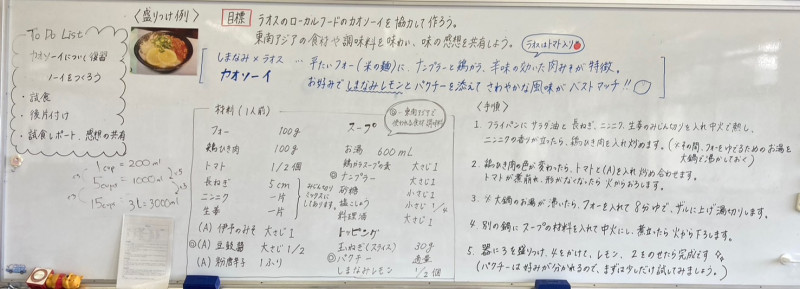 To Do List
カオソーイについて復習
ソーイをつくろう
・試食
・後片付け
・試食レポート、感想の共有
1cup = 200ml
5cups = 1000ml
15cups 3L = 3000ml
×5
×3
〈盛りつけ例〉
目標 ラオスのローカルフードのカオソーイを協力して作ろう。
東南アジアの食材や調味料を味わい、味の感想を共有しよう。
ラオスはトマト入り
しまなみ×ラオス … 平たいフォー(米の麺)に、ナンプラーと鶏がら、辛味の効いた肉みそが特徴。
カオソーイ お好みでしまなみレモンとパクチーを添えてさわやかな風味がベストマッチ!!
材料(1人前)
フォー 100g
鶏ひき肉 100g
トマト 1/2個
長ねぎ 5cm
ニンニク 一片
生姜 一片
みじん切りミックスにしてあります。
(A) 伊予のみそ 大さじ1
◎(A) 豆鼓醤 大さじ1/2
(A) 粉唐辛子 1ふり
スープ
◎…東南アジアで使われる食材・調味料
お湯 600mL
鶏ガラスープの素 大さじ1
◎ナンプラー 大さじ1
砂糖 小さじ1
塩こしょう 小さじ1/4
料理酒 大さじ1
トッピング
玉ねぎ(スライス) 30g
◎パクチー 適量
しまなみレモン 1/2個
〈手順〉
1. フライパンにサラダ油と長ねぎ、ニンニク、生姜のみじん切りを入れ中火で熱し、
ニンニクの香りが立ったら、鶏ひき肉を入れ炒めます。(※その間、フォーをゆでるためのお湯を
大鍋で沸かしておく)
2. 鶏ひき肉の色が変わったら、トマトと(A)を入れ炒め合わせます。
トマトが煮崩れ、形がなくなったら火からおろします。
3. 大鍋のお湯が沸いたら、フォーを入れて8分ゆで、ザルに上げ湯切りします。
4. 別の鍋にスープの材料を入れて中火にし、煮立ったら火から下ろします。
5. 器に3を盛りつけ、4をかけて、レモン、2をのせたら完成です
(パクチーは好みが分かれるので、まずは少しだけ試してみましょう。)